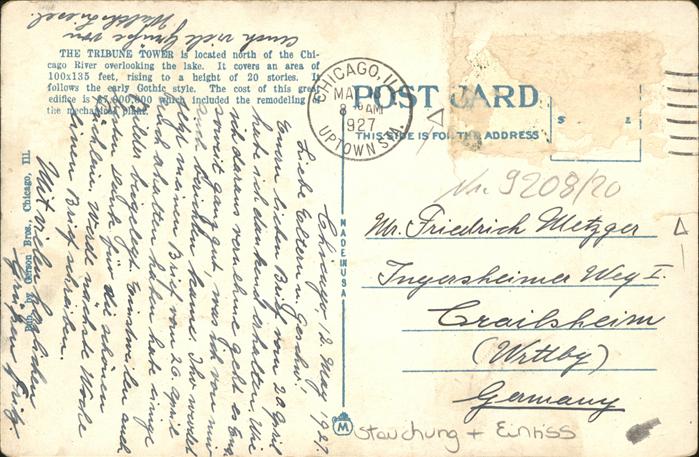 Auch viel Grüße von
THE TRIBUNE TOWER is located north of the Chi-
cago River overlooking the lake. It covers an area of
100x135 feet, rising to a height of 20 stories. It
follows the early Gothic style. The cost of this great
edifice is $7,000,000 which included the remodeling of
the mechanical plant.
CHICAGO, ILL
MA
8 AM
1927
UPTOWN STA.
POST CARD
THIS SIDE IS FOR THE ADDRESS
S
Nr. 9208/20
Mr. Friedrich Metzger
Ingersheimer Weg I.
Crailsheim
(Wrttbg)
Germany
Chicago, 12. May 1927.
Liebe Eltern u. Geschw.!
Euren lieben Brief vom 20 April
habe ich dankend erhalten. Wie
ich daraus vernehme geht es Euch
soweit ganz gut, was ich von mir
auch berichten kann. Ihr werdet
meinen Brief vom 20. April
auch erhalten haben hab einige
Bilder beigelegt. Einstweilen auch
Dank für die schönen
Werde nächste Woche
einen Brief schreiben.
Mit viel herzlichen
Grüßen
Pub. by Gerson Bros., Chicago, Ill.
MADE IN USA
M
Stauchung + Einriss